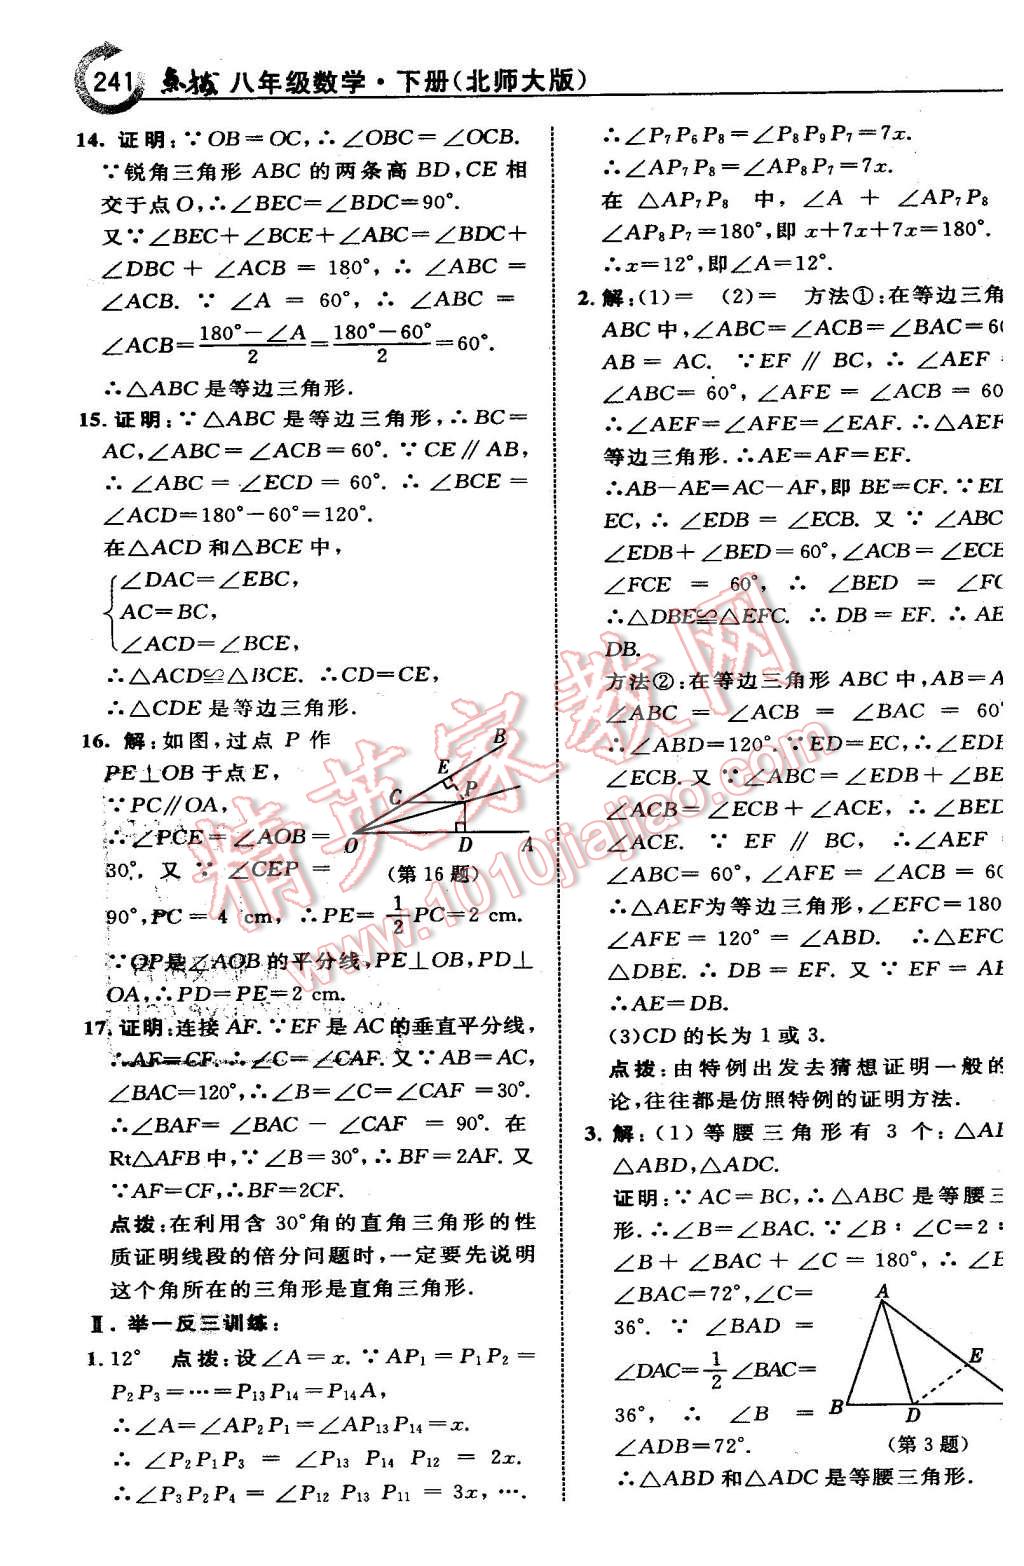 241 点拨 八年级数学·下册(北师大版)
14. 证明:∵OB=OC,∴∠OBC=∠OCB.
∵锐角三角形 ABC 的两条高 BD,CE 相
交于点O,∴∠BEC=∠BDC=90°.
又∵∠BEC+∠BCE+∠ABC=∠BDC+
∠DBC + ∠ACB = 180°, ∴ ∠ABC =
∠ACB. ∵ ∠A = 60°, ∴ ∠ABC =
∠ACB=(180°-∠A)/2=(180°-60°)/2=60°.
∴△ABC 是等边三角形.
15. 证明:∵△ABC 是等边三角形,∴BC=
AC,∠ABC=∠ACB=60°. ∵CE∥AB,
∴ ∠ABC = ∠ECD = 60°. ∴ ∠BCE =
∠ACD=180°-60°=120°.
在△ACD 和△BCE 中,
∠DAC=∠EBC,
AC=BC,
∠ACD=∠BCE,
∴△ACD≌△BCE. ∴CD=CE,
∴△CDE 是等边三角形.
16. 解:如图,过点 P 作
PE⊥OB 于点 E,
∵PC∥OA,
∴∠PCE=∠AOB=
30°, 又 ∵ ∠CEP =
90°,PC = 4 cm, ∴PE=1/2PC=2 cm.
∵OP是∠AOB 的平分线,PE⊥OB,PD⊥
OA,∴PD=PE=2 cm.
B
E
C
P
O D A
(第 16 题)
17. 证明:连接 AF. ∵EF 是 AC 的垂直平分线,
∴AF=CF. ∴∠C=∠CAF. 又∵AB=AC,
∠BAC=120°,∴∠B=∠C=∠CAF =30°.
∴∠BAF= ∠BAC - ∠CAF = 90°. 在
Rt△AFB 中,∵∠B=30°,∴BF=2AF. 又
∵AF=CF,∴BF=2CF.
点拨:在利用含 30°角的直角三角形的性
质证明线段的倍分问题时,一定要先说明
这个角所在的三角形是直角三角形.
Ⅱ. 举一反三训练:
1. 12° 点拨:设∠A=x. ∵AP₁=P₁P₂=
P₂P₃=…=P₁₃P₁₄=P₁₄A,
∴∠A=∠AP₂P₁=∠AP₁₃P₁₄=x.
∴ ∠P₂P₁P₃ = ∠P₁₃ P₁₄ P₁₂ = 2x.
∴ ∠P₃P₂P₄ = ∠P₁₂ P₁₃ P₁₁ = 3x, ….
∴∠P₇P₆P₈=∠P₈P₉P₇=7x.
∴∠AP₇P₈=∠AP₈P₇=7x.
在 △AP₇P₈ 中, ∠A + ∠AP₇P₈
∠AP₈P₇=180°,即 x+7x+7x=180°.
∴x=12°,即∠A=12°.
2. 解:(1)= (2)= 方法①:在等边三角
ABC 中,∠ABC=∠ACB=∠BAC=60
AB = AC. ∵EF ∥ BC, ∴ ∠AEF
∠ABC= 60°,∠AFE = ∠ACB = 60
∴∠AEF=∠AFE=∠EAF. ∴△AEF
等边三角形. ∴AE=AF=EF.
∴AB-AE=AC-AF,即 BE=CF. ∵ED
EC,∴ ∠EDB = ∠ECB. 又 ∵ ∠ABC
∠EDB+∠BED=60°,∠ACB=∠ECB
∠FCE = 60°, ∴ ∠BED = ∠FC
∴△DBE≌△EFC. ∴ DB = EF. ∴ AE
DB.
方法②:在等边三角形 ABC 中,AB=A
∠ABC = ∠ACB = ∠BAC = 60°
∴∠ABD=120°. ∵ED=EC,∴∠EDB
∠ECB. 又 ∵∠ABC=∠EDB+∠BE
∠ACB=∠ECB+∠ACE, ∴∠BED
∠ACE. ∵ EF ∥ BC, ∴∠AEF =
∠ABC= 60°, ∠AFE = ∠ACB = 60
∴△AEF为等边三角形,∠EFC=180
∠AFE = 120° = ∠ABD. ∴△EFC
△DBE. ∴ DB = EF. 又 ∵ EF = AE
∴AE=DB.
(3)CD 的长为 1 或 3.
点拨:由特例出发去猜想证明一般的
论,往往都是仿照特例的证明方法.
3. 解:(1) 等腰三角形有 3 个:△AB
△ABD,△ADC.
证明:∵AC=BC,∴△ABC 是等腰三
形. ∴∠B=∠BAC. ∵∠B∶∠C=2∶
∠B + ∠BAC + ∠C = 180°, ∴ ∠B
∠BAC=72°,∠C=
36°. ∵ ∠BAD =
∠DAC=1/2∠BAC=
36°, ∴ ∠B =
∠ADB=72°.
∴△ABD 和△ADC 是等腰三角形.
A
E
B D
(第 3 题)
精英家教网
www.1010jiajiao.com